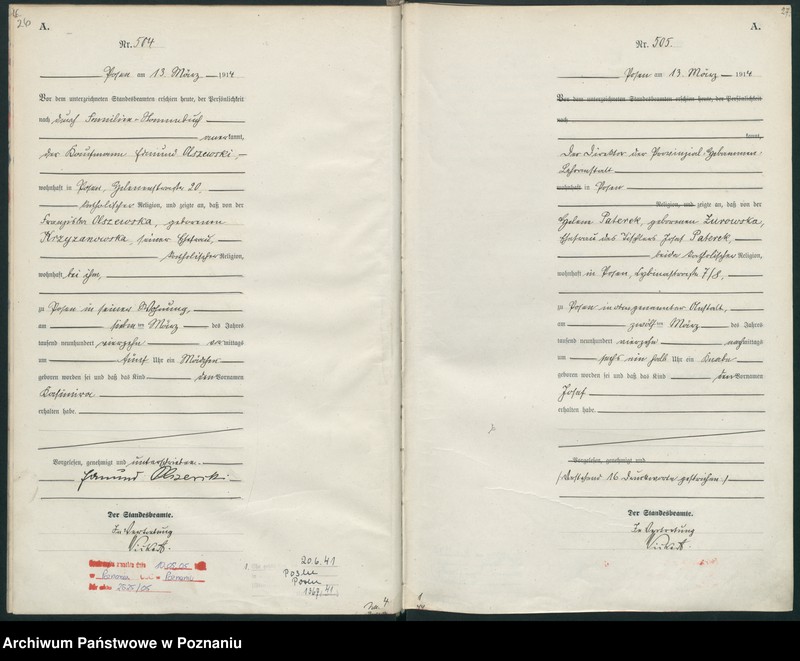 26
A.
Nr. 504
Posen am 13. März 1914
Vor dem unterzeichneten Standesbeamten erschien heute, der Persönlichkeit
nach durch Familien-Stammbuch
anerkannt,
der Kaufmann Edmund Olszewski,
wohnhaft in Posen, Helenenstraße 20,
katholischer Religion, und zeigte an, daß von der
Franziska Olszewska, geborenen
Krzyzanowska, seiner Ehefrau,
katholischer Religion,
wohnhaft bei ihm,
zu Posen in seiner Wohnung,
am siebenten März des Jahres
tausend neunhundert vierzehn vormittags
um fünf Uhr ein Mädchen
geboren worden sei und daß das Kind den Vornamen
Kasimira
erhalten habe.
Vorgelesen, genehmigt und unterschrieben.
Edmund Olszewski
Der Standesbeamte.
In Vertretung
20.6.41
Posen
Posen
1369/41
27
A.
Nr. 505.
Posen am 13. März 1914
Vor dem unterzeichneten Standesbeamten erschien heute, der Persönlichkeit
nach
kannt,
Der Direktor der Provinzial-Hebammen-
Lehranstalt
wohnhaft in Posen
Religion, und zeigte an, daß von der
Helene Paterek, geborenen Zurowska,
Ehefrau des Tischlers Josef Paterek,
beide katholischer Religion,
wohnhaft in Posen, 7/8,
zu Posen in obengenannter Anstalt,
am zwölften März des Jahres
tausend neunhundert vierzehn nachmittags
um sechs ein halb Uhr ein Knabe
geboren worden sei und daß das Kind den Vornamen
Josef
erhalten habe.
Vorgelesen, genehmigt und
(Vorstehend 16 Druckworte gestrichen.)
Der Standesbeamte.
In Vertretung
Archiwum Państwowe w Poznaniu